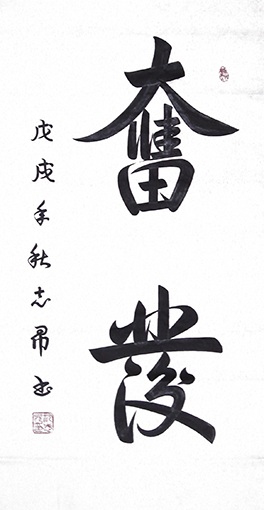 奮發
戊戌年秋志帝書